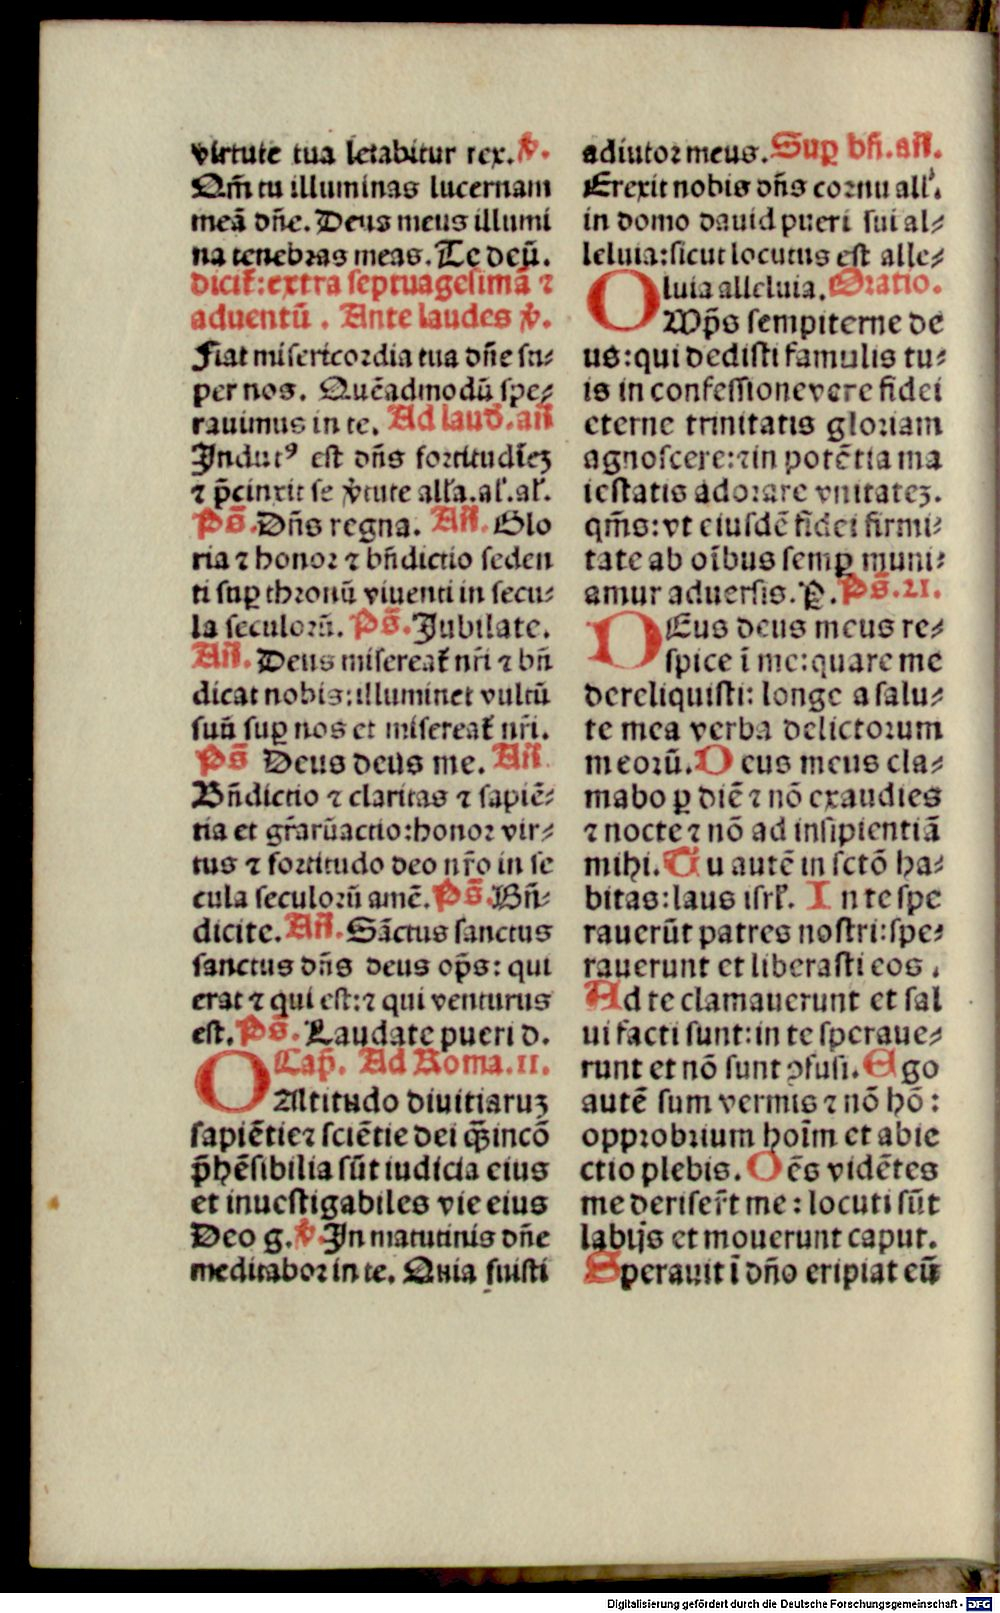 virtute tua letabitur rex. ℣.
Qm̄ tu illuminas lucernam
meā dn̄e. Deus meus illumi
na tenebras meas. Te deū.
dicit᷑: extra septuagesimā ⁊
aduentū . Ante laudes ℣.
Fiat misericordia tua dn̄e su⸗
per nos. Quēadmodū spe⸗
rauimus in te. Ad laud̄. an̄
Indutꝰ est dn̄s fortitudīeʒ
⁊ p̄cinxit se v̓tute all̓a. al̓. al̓.
Ps̄. Dn̄s regna. An̄. Glo
ria ⁊ honor ⁊ bn̄dictio seden
ti suꝑ thronū viuenti in secu⸗
la seculorū. Ps̄. Iubilate.
An̄. Deus misereat᷑ nr̄i ⁊ bn̄
dicat nobis: illuminet vultū
suū suꝑ nos et misereat᷑ nr̄i.
Ps̄ Deus deus me. An̄.
Bn̄dictio ⁊ claritas ⁊ sapiē⸗
tia et gr̄arūactio: honor vir⸗
tus ⁊ fortitudo deo nr̄o in se
cula seculorū amē. Ps̄. Bn̄⸗
dicite. An̄. Sāctus sanctus
sanctus dn̄s deus op̄s: qui
erat ⁊ qui est: ⁊ qui venturus
est. Ps̄. Laudate pueri d.
Cap̄. Ad Roma. 11.
O Altitudo diuitiaruʒ
sapiētie ⁊ sciētie dei q̄ʒ incō
p̄hēsibilia sūt iudicia eius
et inuestigabiles vie eius
Deo g. ℣. In matutinis dn̄e
meditabor in te. Quia fuisti
adiutor meus. Suꝑ bn̄. an̄.
Erexit nobis dn̄s cornu all̓.
in domo dauid pueri sui al⸗
leluia: sicut locutus est alle⸗
luia alleluia. Oratio.
OMp̄s sempiterne de
us: qui dedisti famulis tu⸗
is in confessione vere fidei
eterne trinitatis gloriam
agnoscere: ⁊ in potētia ma
iestatis adorare vnitateʒ.
qm̄s: vt eiusdē fidei firmi⸗
tate ab oībus semꝑ muni⸗
amur aduersis. P̱. Ps̄. 21.
DEus deus meus re⸗
spice ī me: quare me
dereliquisti: longe a salu⸗
te mea verba delictorum
meorū. Deus meus cla⸗
mabo ꝑ diē ⁊ nō exaudies
⁊ nocte ⁊ nō ad insipientiā
mihi. Tu autē in sctō ha⸗
bitas: laus isrl̓. In te spe
rauerūt patres nostri: spe⸗
rauerunt et liberasti eos.
Ad te clamauerunt et sal
ui facti sunt: in te speraue⸗
runt et nō sunt ꝯfusi. Ego
autē sum vermis ⁊ nō hō:
opprobrium hoīm et abie
ctio plebis. Oēs vidētes
me deriser̄t me: locuti sūt
labijs et mouerunt caput.
Sperauit ī dn̄o eripiat eū
Digitalisierung gefördert durch die Deutsche Forschungsgemeinschaft - DFG